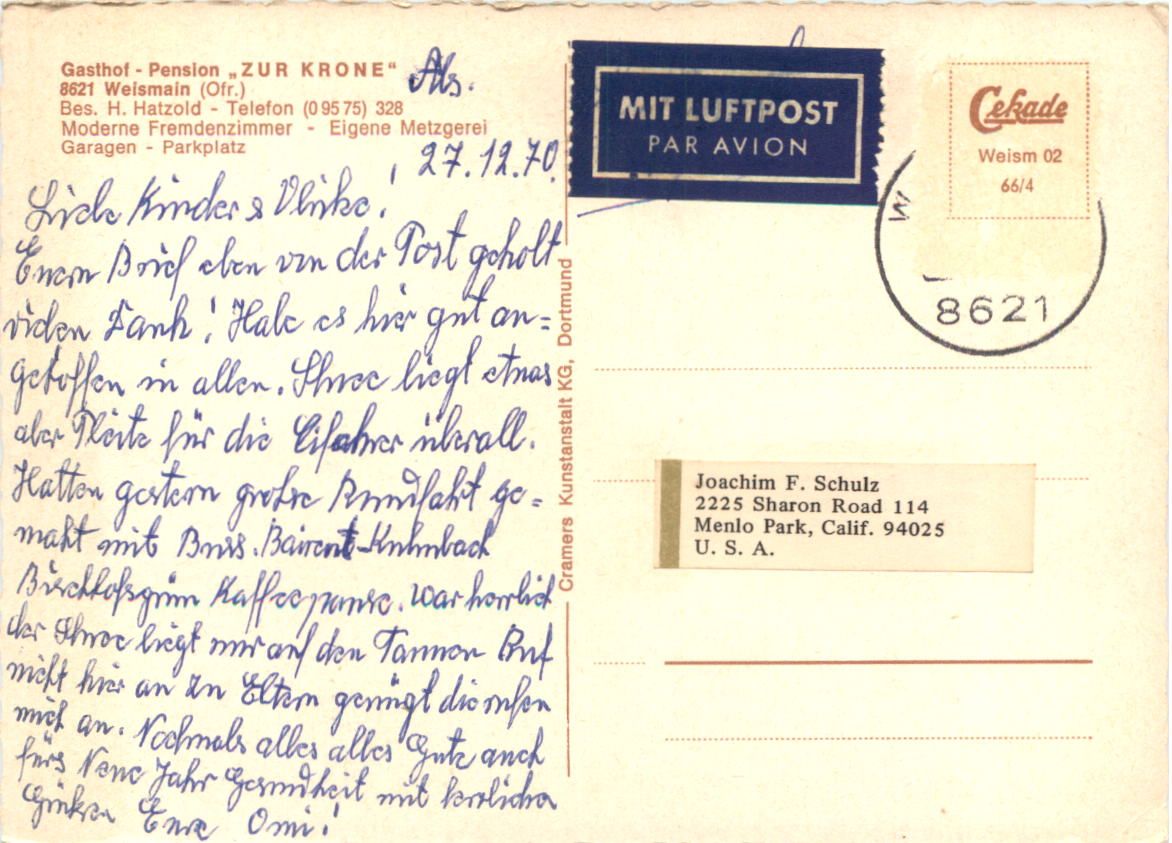 Gasthof - Pension „ZUR KRONE"
8621 Weismain (Ofr.)
Bes. H. Hatzold - Telefon (0 95 75) 328
Moderne Fremdenzimmer - Eigene Metzgerei
Garagen - Parkplatz
Abs.
27.12.70.
Liebe Kinder & Ulrike!
Euern Brief eben von der Post geholt
vielen Dank! Habe es hier gut an=
getroffen in allen. Schnee liegt etwas
aber Pleite für die überall.
Hatten gestern große Rundfahrt ge=
macht mit Buss. Baireut-Kulmbach
Kaffeepause. War herrlich
der Schnee liegt nur auf den Tannen Ruf
nicht hier an zu Eltern genügt die rufen
mich an. Nochmals alles alles Gute auch
fürs Neue Jahr Gesundheit mit herzlichen
Grüßen Eure Omi!
Cramers Kunstanstalt KG, Dortmund
MIT LUFTPOST
PAR AVION
Cekade
Weism 02
66/4
W
8621
Joachim F. Schulz
2225 Sharon Road 114
Menlo Park, Calif. 94025
U. S. A.